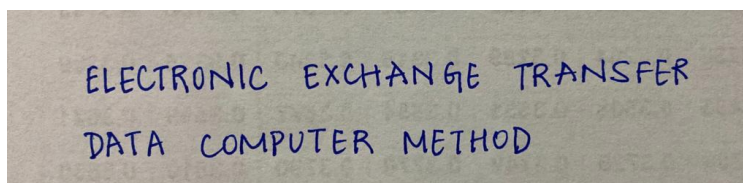 ELECTRONIC EXCHANGE TRANSFER
DATA COMPUTER METHOD